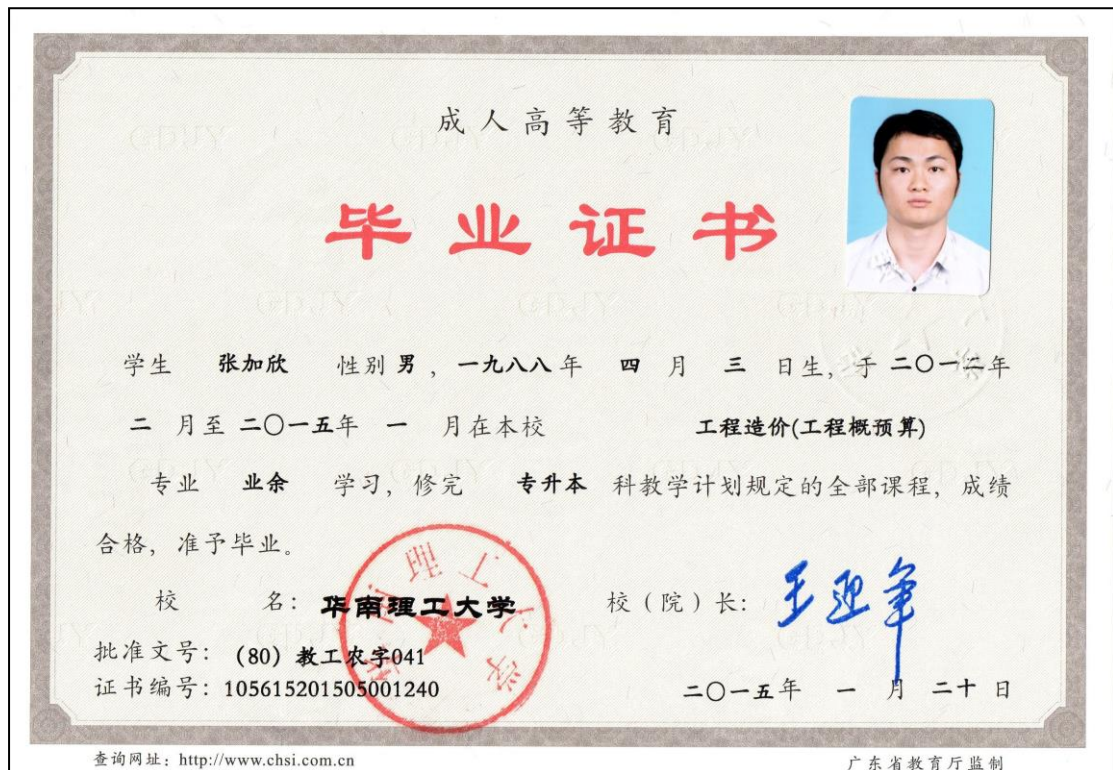 成人高等教育
毕业证书
学生 张加欣 性别 男，一九八八年 四 月 三 日生，于 二〇一二年
二 月至 二〇一五年 一 月在本校 工程造价(工程概预算)
专业 业余 学习，修完 专升本 科教学计划规定的全部课程，成绩
合格，准予毕业。
校 名：华南理工大学 校（院）长：王迎军
华南理工大学
批准文号：(80) 教工农字041
证书编号：105615201505001240 二〇一五年 一 月 二十 日
查询网址：http://www.chsi.com.cn 广东省教育厅监制